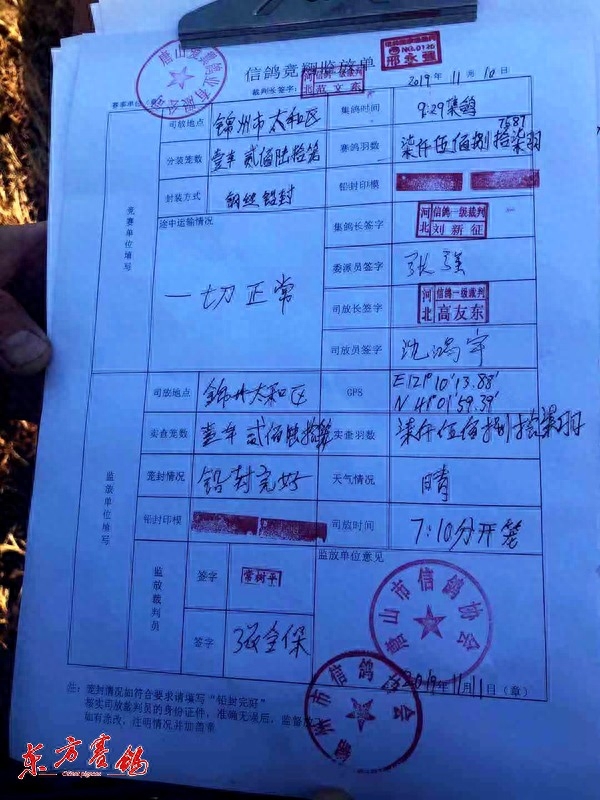 信鸽竞翔监放单
NO.0120
邢永强
裁判长签字:
河北
信鸽一级裁判
范文东
2019年11月10日
司放地点
锦州市太和区
集鸽时间
9:29集鸽
分装笼数
壹车贰佰陆拾笼
赛鸽羽数
7587
柒仟伍佰捌拾柒羽
封装方式
钢丝铅封
铅封印模
竞赛单位填写
途中运输情况
一切正常
集鸽长签字
河北
信鸽一级裁判
刘新征
委派员签字
张强
司放长签字
河北
信鸽一级裁判
高友东
司放员签字
司放地点
锦州太和区
GPS
E121°10'13.88'
N 41°01'59.39'
实查笼数
壹车贰佰陆拾笼
实查羽数
柒仟伍佰捌拾柒羽
笼封情况
铅封完好
天气情况
晴
铅封印模
司放时间
7:10分开笼
监放单位填写
监放裁判员
签字
常树平
签字
张全保
监放单位意见
唐山市信鸽协会
锦州市信鸽协会
2019年11月11日(章)
注:笼封情况如符合要求请填写"铅封完好"
核实司放裁判员的身份证件,准确无误后,监督放
如有涂改,注明情况并加盖章
东方赛鸽